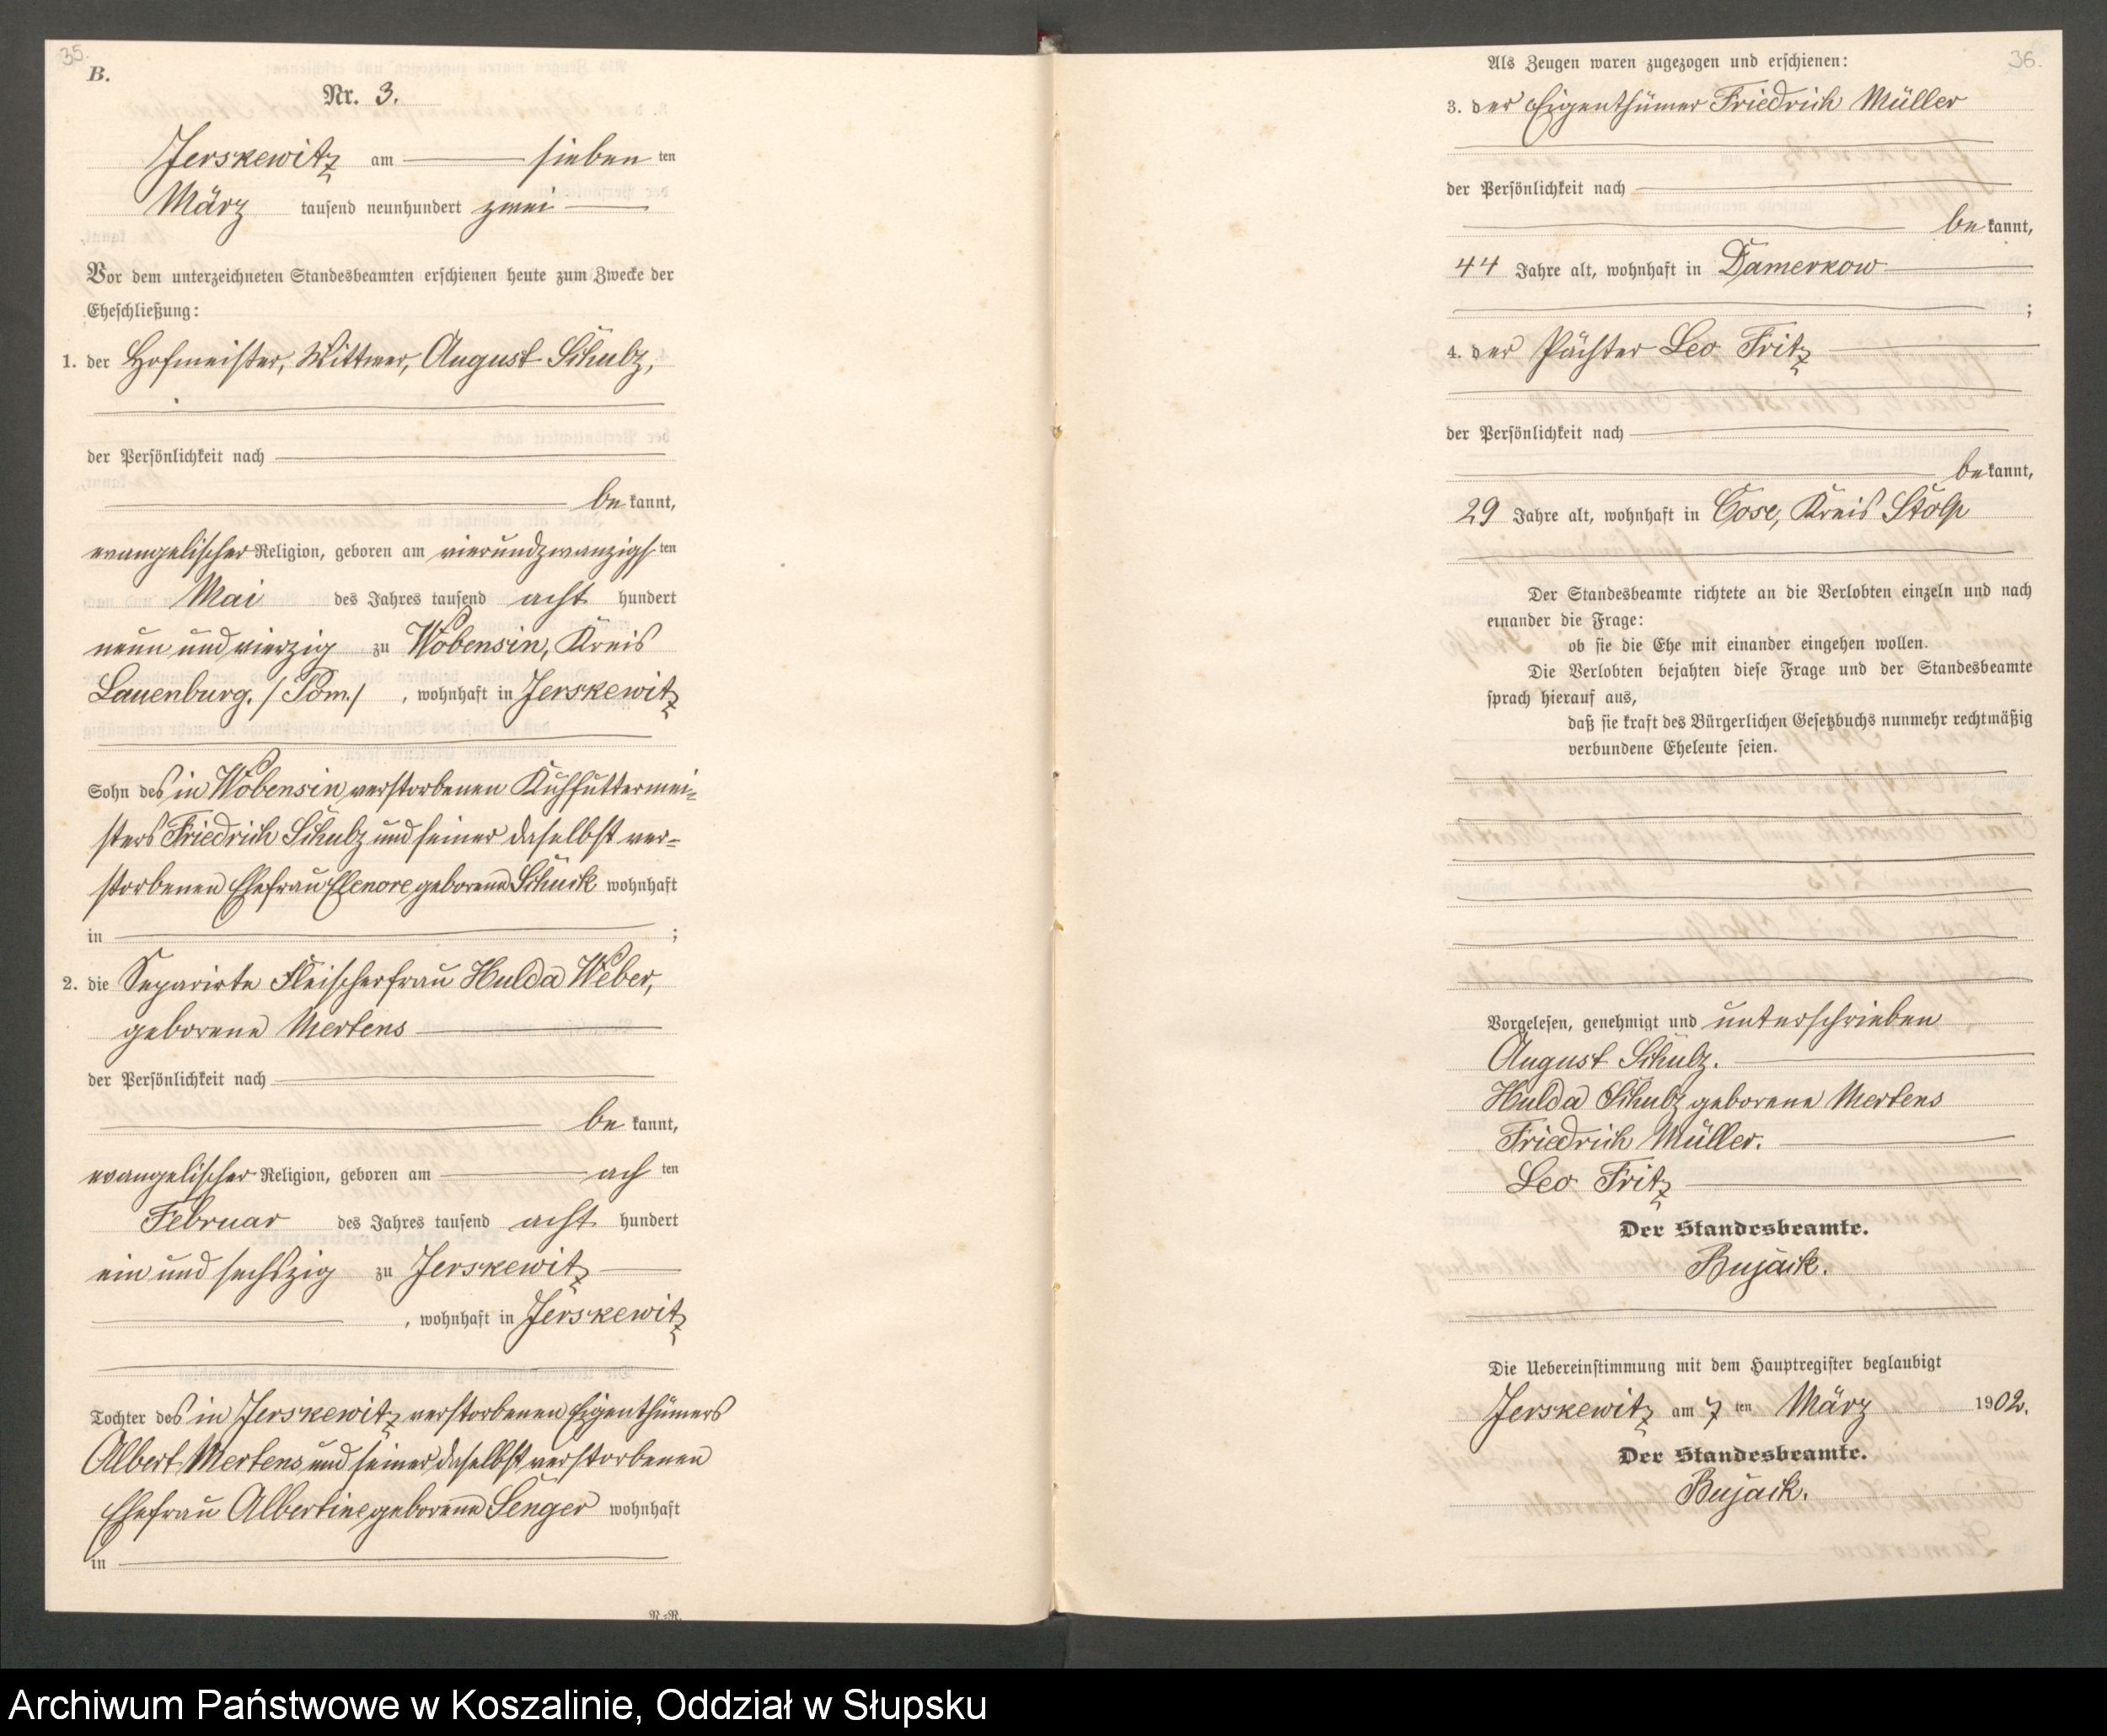 35.
B.
Nr. 3.
Jerskewitz am sieben ten
März tausend neunhundert zwei
Vor dem unterzeichneten Standesbeamten erschienen heute zum Zwecke der
Eheschließung:
1. der Hofmeister, Wittwer, August Schulz,
der Persönlichkeit nach
be kannt,
evangelischer Religion, geboren am vierundzwanzigs ten
Mai des Jahres tausend acht hundert
neun und vierzig zu Wobensin, Kreis
Lauenburg. /Pom./ , wohnhaft in Jerskewitz
Sohn des in Wobensin verstorbenen Kuhfuttermei=
sters Friedrich Schulz und seiner daselbst ver=
storbenen Ehefrau Elenore geborene Schuck wohnhaft
in ;
2. die Separirte Fleischerfrau Hulda Weber,
geborene Mertens
der Persönlichkeit nach
be kannt,
evangelischer Religion, geboren am ach ten
Februar des Jahres tausend acht hundert
ein und sechszig zu Jerskewitz
, wohnhaft in Jerskewitz
Tochter des in Jerskewitz verstorbenen Eigenthümers
Albert Mertens und seiner daselbst verstorbenen
Ehefrau Albertine geborene Senger wohnhaft
in
N.=R.
36.
Als Zeugen waren zugezogen und erschienen:
3. der Eigenthümer Friedrich Müller
der Persönlichkeit nach
be kannt,
44 Jahre alt, wohnhaft in Damerkow
;
4. der Pächter Leo Fritz
der Persönlichkeit nach
be kannt,
29 Jahre alt, wohnhaft in Cose, Kreis Stolp
Der Standesbeamte richtete an die Verlobten einzeln und nach
einander die Frage:
ob sie die Ehe mit einander eingehen wollen.
Die Verlobten bejahten diese Frage und der Standesbeamte
sprach hierauf aus,
daß sie kraft des Bürgerlichen Gesetzbuchs nunmehr rechtmäßig
verbundene Eheleute seien.
Vorgelesen, genehmigt und unterschrieben
August Schulz.
Hulda Schulz geborene Mertens
Friedrich Müller.
Leo Fritz
Der Standesbeamte.
Bujack.
Die Uebereinstimmung mit dem Hauptregister beglaubigt
Jerskewitz am 7 ten März 1902.
Der Standesbeamte.
Bujack.
Archiwum Państwowe w Koszalinie, Oddział w Słupsku